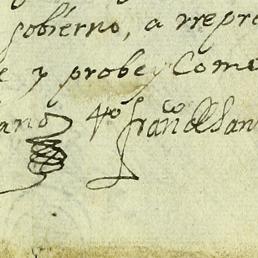 gobierno, a rrepr
e y probey Come
ano yo fran^co de San